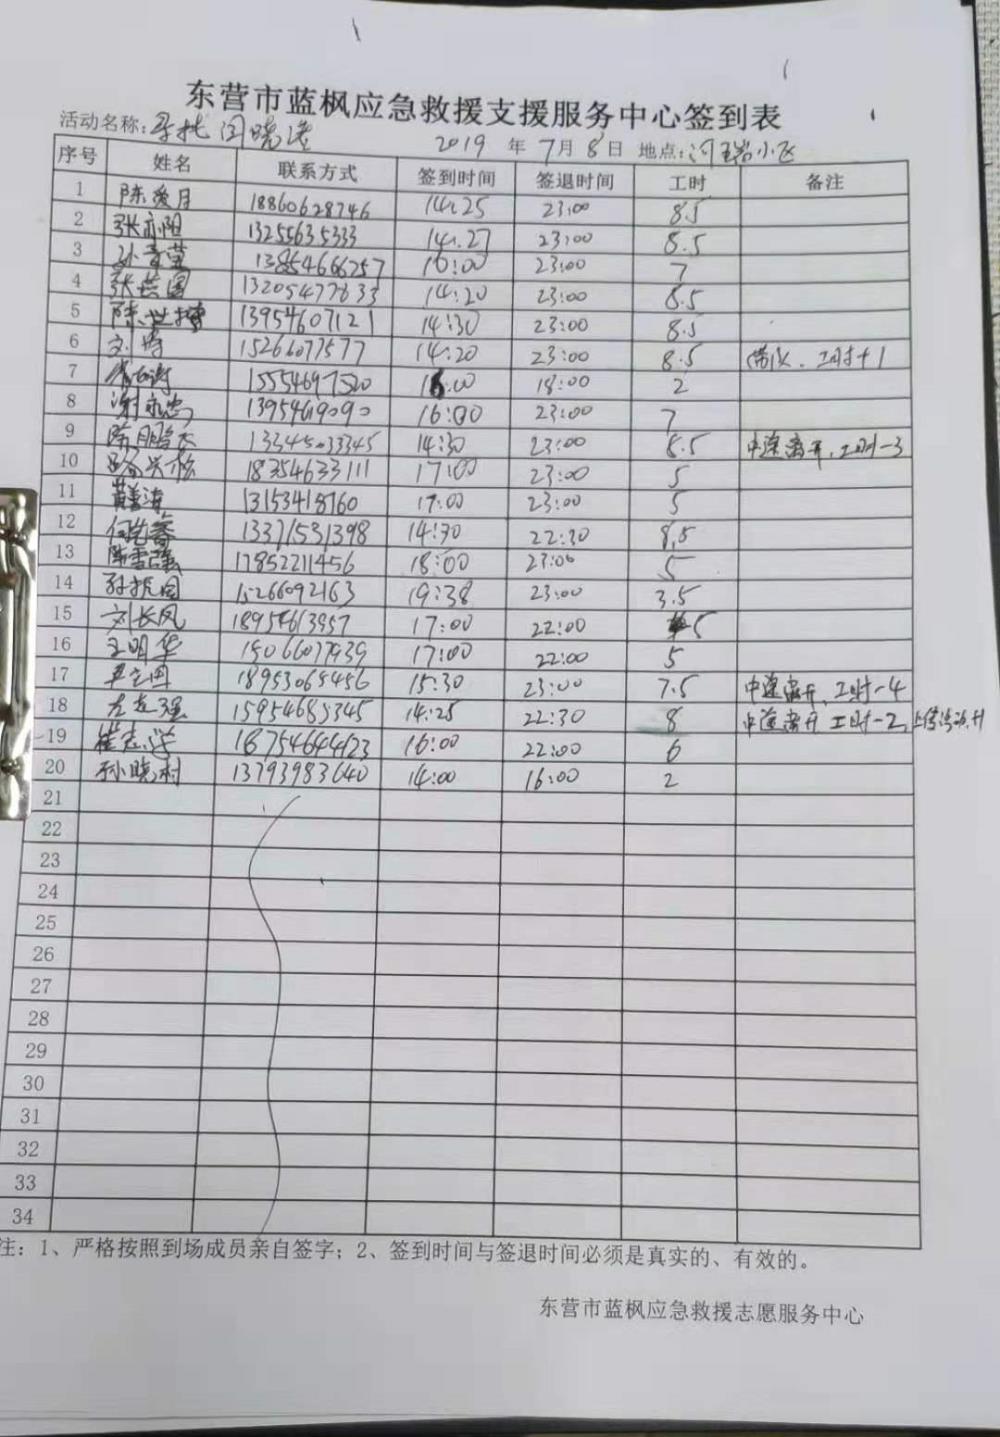 东营市蓝枫应急救援支援服务中心签到表
活动名称: 寻找闫晓 2019 年 7月 8日 地点: 小区
序号 姓名 联系方式 签到时间 签退时间 工时 备注
1 陈爱月 18860628746 14:25 23:00 8.5
2 张亦阳 13255635333 14:27 23:00 8.5
3 孙 13854666757 16:00 23:00 7
4 张 13205477833 14:20 23:00 8.5
5 陈世 13954607121 14:30 23:00 8.5
6 刘 15266077577 14:20 23:00 8.5 带队、工时+1
7 15554697520 18:00 2
8 谢永忠 13954619090 16:00 23:00 7
9 陈朋 13345033345 14:30 23:00 8.5 中途离开、工时-3
10 18354633111 17:00 23:00 5
11 13153418760 17:00 23:00 5
12 何 13371531398 14:30 22:30 8.5
13 陈雪 17852211456 18:00 23:00 5
14 孙 15266092163 19:38 23:00 3.5
15 刘长凤 18954613957 17:00 22:00 5
16 王明华 15066077939 17:00 22:00 5
17 尹立国 18953065456 15:30 23:00 7.5 中途离开、工时-4
18 左 强 15954685345 14:25 22:30 8 中途离开 工时-2
19 崔志 18754644123 16:00 22:00 6
20 孙晓村 13793983640 14:00 16:00 2
21
22
23
24
25
26
27
28
29
30
31
32
33
34
注: 1、严格按照到场成员亲自签字; 2、签到时间与签退时间必须是真实的、有效的。
东营市蓝枫应急救援志愿服务中心